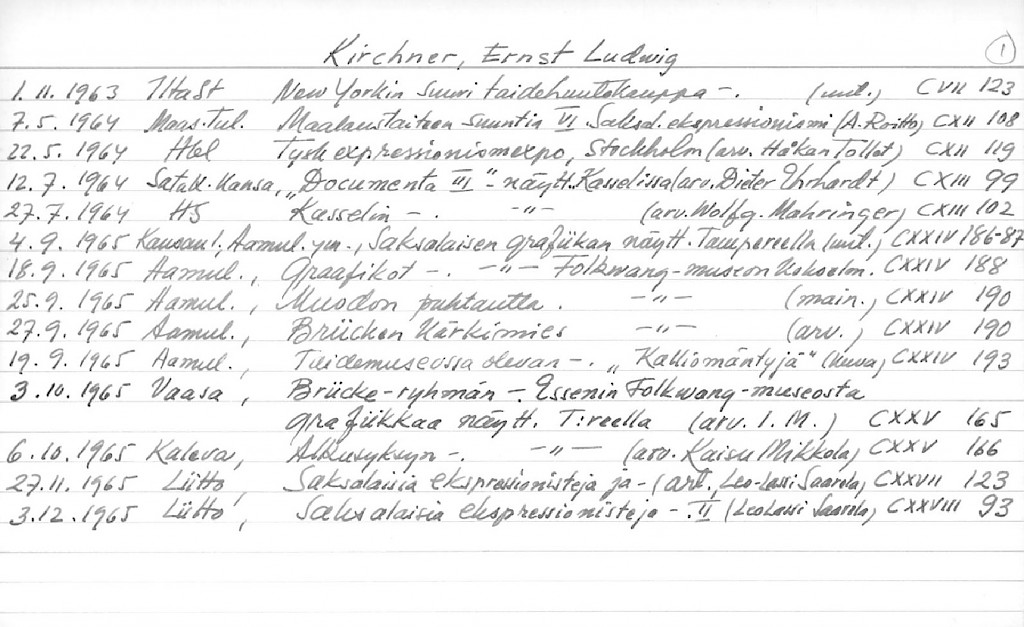 Kirchner, Ernst Ludwig 1
1.11.1963 IltaSt New Yorkin suuri taidehuutokauppa -. (uut.) CVII 123
7.5.1964 Maas.Tul. Maalaustaiteen suuntia VI Saksal. ekspressionismi (A. Roitto) CXII 108
22.5.1964 Hbl Tysk expressionismexpo, Stockholm (arv. Håkan Tollet) CXII 119
12.7.1964 Satak. Kansa, "Documenta III" - näytt. Kasselissa (arv. Dieter Ehrhardt) CXIII 99
27.7.1964 HS Kasselin -. -"- (arv. Wolfg. Mahringer) CXIII 102
4.9.1965 Kansanl., Aamul. ym., Saksalaisen grafiikan näytt. Tampereella (uut.) CXXIV 186-87
18.9.1965 Aamul., Graafikot -. -"- Folkwang-museon kokoelm. CXXIV 188
25.9.1965 Aamul., Muodon puhtautta. -"- (main.) CXXIV 190
27.9.1965 Aamul., Brücken kärkimies -"- (arv.) CXXIV 190
19.9.1965 Aamul., Taidemuseossa olevan -. "Kalliomäntyjä" (kuva) CXXIV 193
3.10.1965 Vaasa, Brücke-ryhmän -. Essenin Folkwang-museosta
grafiikkaa näytt. T:reella (arv. I.M.) CXXV 165
6.10.1965 Kaleva, Alkusyksyn -. -"- (arv. Kaisu Mikkola) CXXV 166
27.11.1965 Liitto, Saksalaisia ekspressionisteja ja - (art., Leo-Lassi Saarela) CXXVII 123
3.12.1965 Liitto, Saksalaisia ekspressionisteja -. II (Leo Lassi Saarela) CXXVIII 93